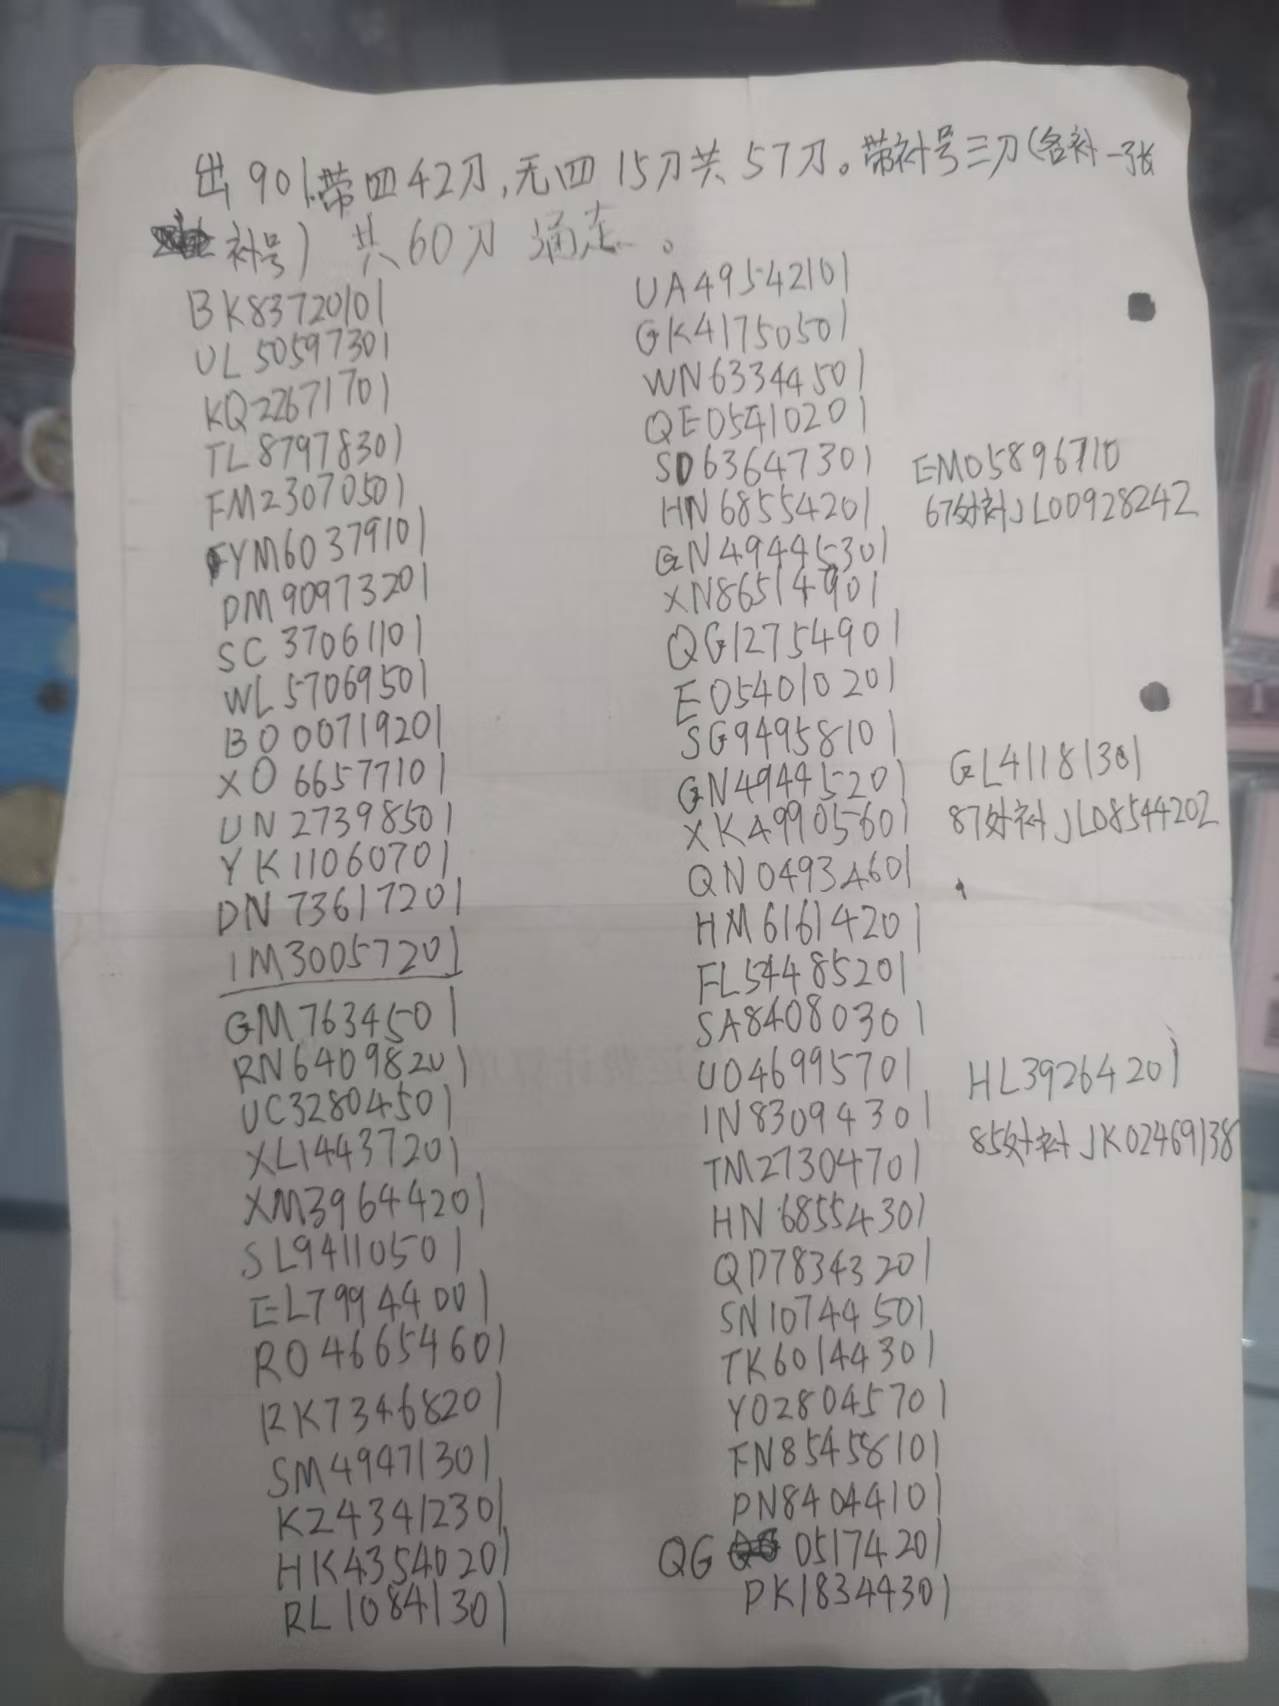 出901.带四42刀,无四15刀共57刀。带补号三刀(含补一张
补号) 共60刀 通走。
BK83720101
UL50597301
KQ22671701
TL87978301
FM23070501
YM60379101
DM90973201
SC37061101
WL57069501
BO00719201
XO66577101
UN27398501
YK11060701
DN73617201
IM30057201
GM7634501
RN64098201
UC32804501
XL14437201
XM39644201
SL94110501
EL79944001
RO46654601
RK73468201
SM49471301
KZ43412301
HK43540201
RL10841301
UA49542101
GK41750501
WN63344501
QE05410201
SD63647301
HN68554201
GN49445301
XN86514901
QG12754901
EO54010201
SG94958101
GN49445201
XK49905601
QN04934601
HM61614201
FL54485201
SA84080301
UO46995701
IN83094301
TM27304701
HN68554301
QD78343201
SN10744501
TK60144301
YO28045701
FN85458101
PN84044101
QG 05174201
PK18344301
EM05896710
67处补JL00928242
GL41181301
87处补JL08544202
HL39264201
85处补JK02469138